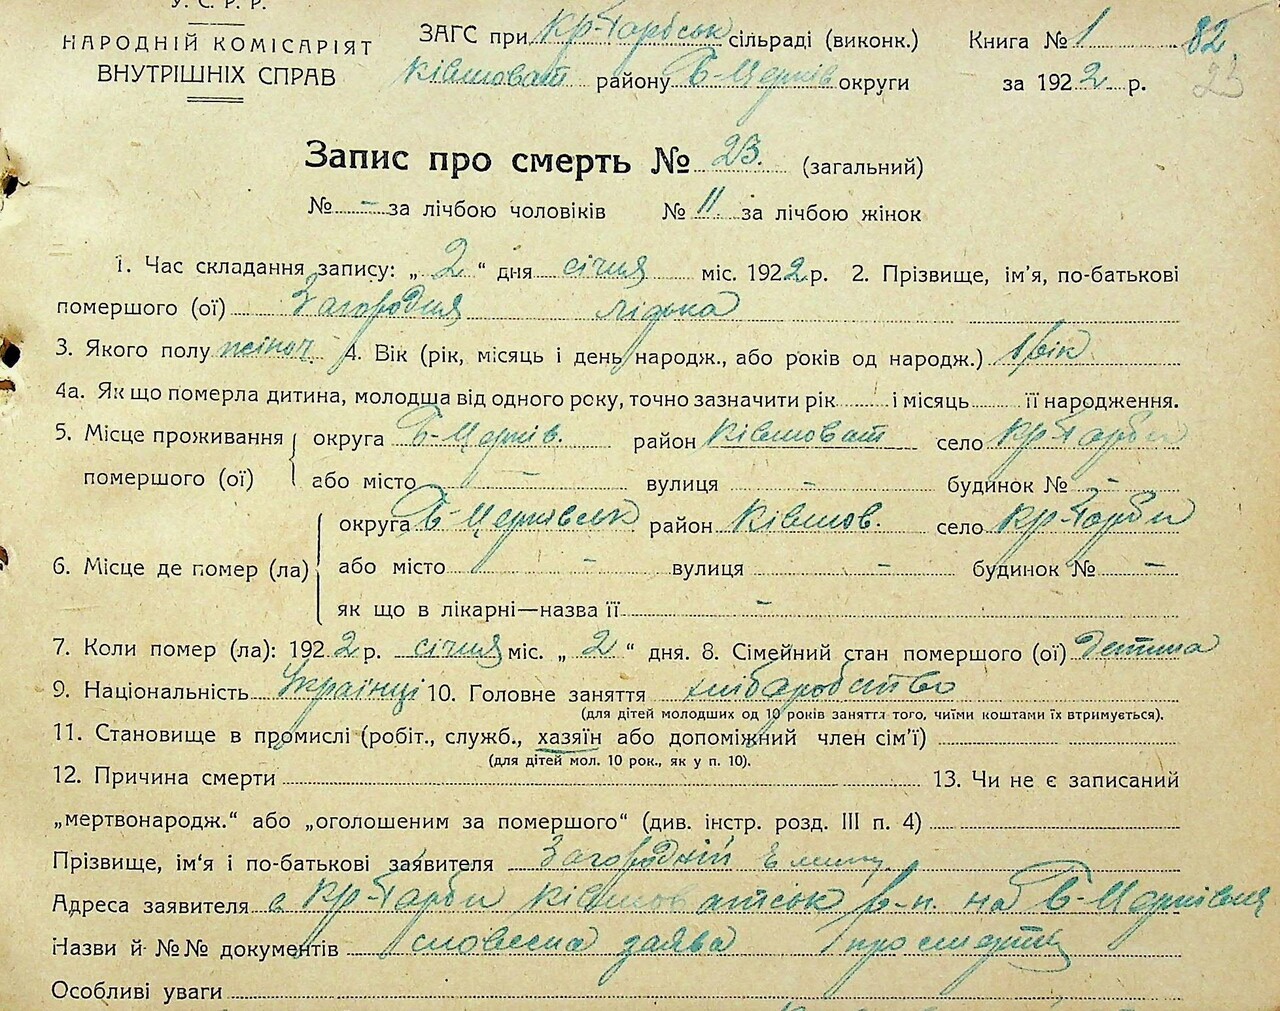 У.С.Р.Р.
НАРОДНІЙ КОМІСАРІЯТ
ВНУТРІШНІХ СПРАВ
ЗАГС при Кр-Гарбськ сільраді (виконк.)
Ківшоват району Б-Церків округи
Книга № 1
за 1922 р.
82
23
Запис про смерть № 23. (загальний)
№ - за лічбою чоловіків № 11 за лічбою жінок
1. Час складання запису: „ 2 “ дня січня міс. 1922 р. 2. Прізвище, ім'я, по-батькові
помершого (ої) Загородня
3. Якого полу жіноч 4. Вік (рік, місяць і день народж., або років од народж.) 1 рік
4а. Як що померла дитина, молодша від одного року, точно зазначити рік і місяць її народження.
5. Місце проживання помершого (ої) округа Б-Церків. район Ківшоват село Кр-Гарби
або місто - вулиця - будинок № -
6. Місце де помер (ла) округа Б-Церківськ район Ківшов. село Кр-Гарби
або місто - вулиця - будинок № -
як що в лікарні—назва її -
7. Коли помер (ла): 1922 р. січня міс. „ 2 “ дня. 8. Сімейний стан помершого (ої) детина
9. Національність Українці 10. Головне заняття хліборобство
(для дітей молодших од 10 років заняття того, чиїми коштами їх втримується).
11. Становище в промислі (робіт., служб., хазяїн або допоміжний член сім'ї)
(для дітей мол. 10 рок., як у п. 10).
12. Причина смерти 13. Чи не є записаний
„мертвонародж.“ або „оголошеним за помершого“ (див. інстр. розд. III п. 4)
Прізвище, ім'я і по-батькові заявителя Загородній
Адреса заявителя с Кр-Гарби Ківшоватськ р-н. на Б-Церківщ
Назви й №№ документів словесна заява про смерть
Особливі уваги